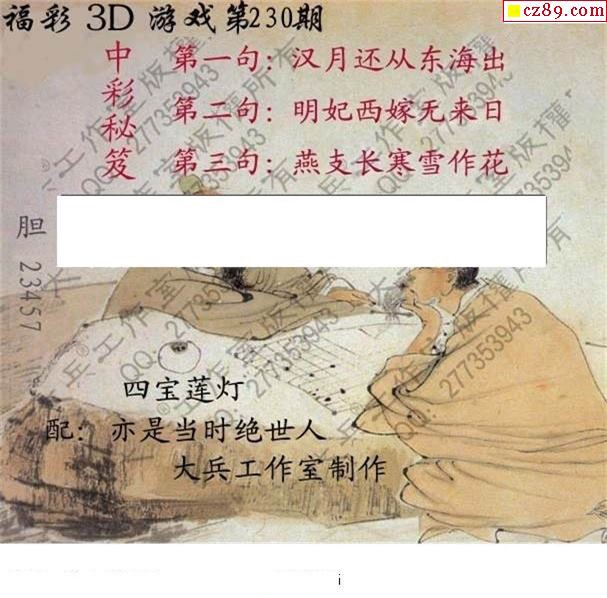 福彩 3D 游戏第230期
cz89.com
中彩秘笈
第一句：汉月还从东海出
第二句：明妃西嫁无来日
第三句：燕支长寒雪作花
胆 23457
四宝莲灯
配：亦是当时绝世人
大兵工作室制作
大兵工作室版权所有
QQ：277353943
i